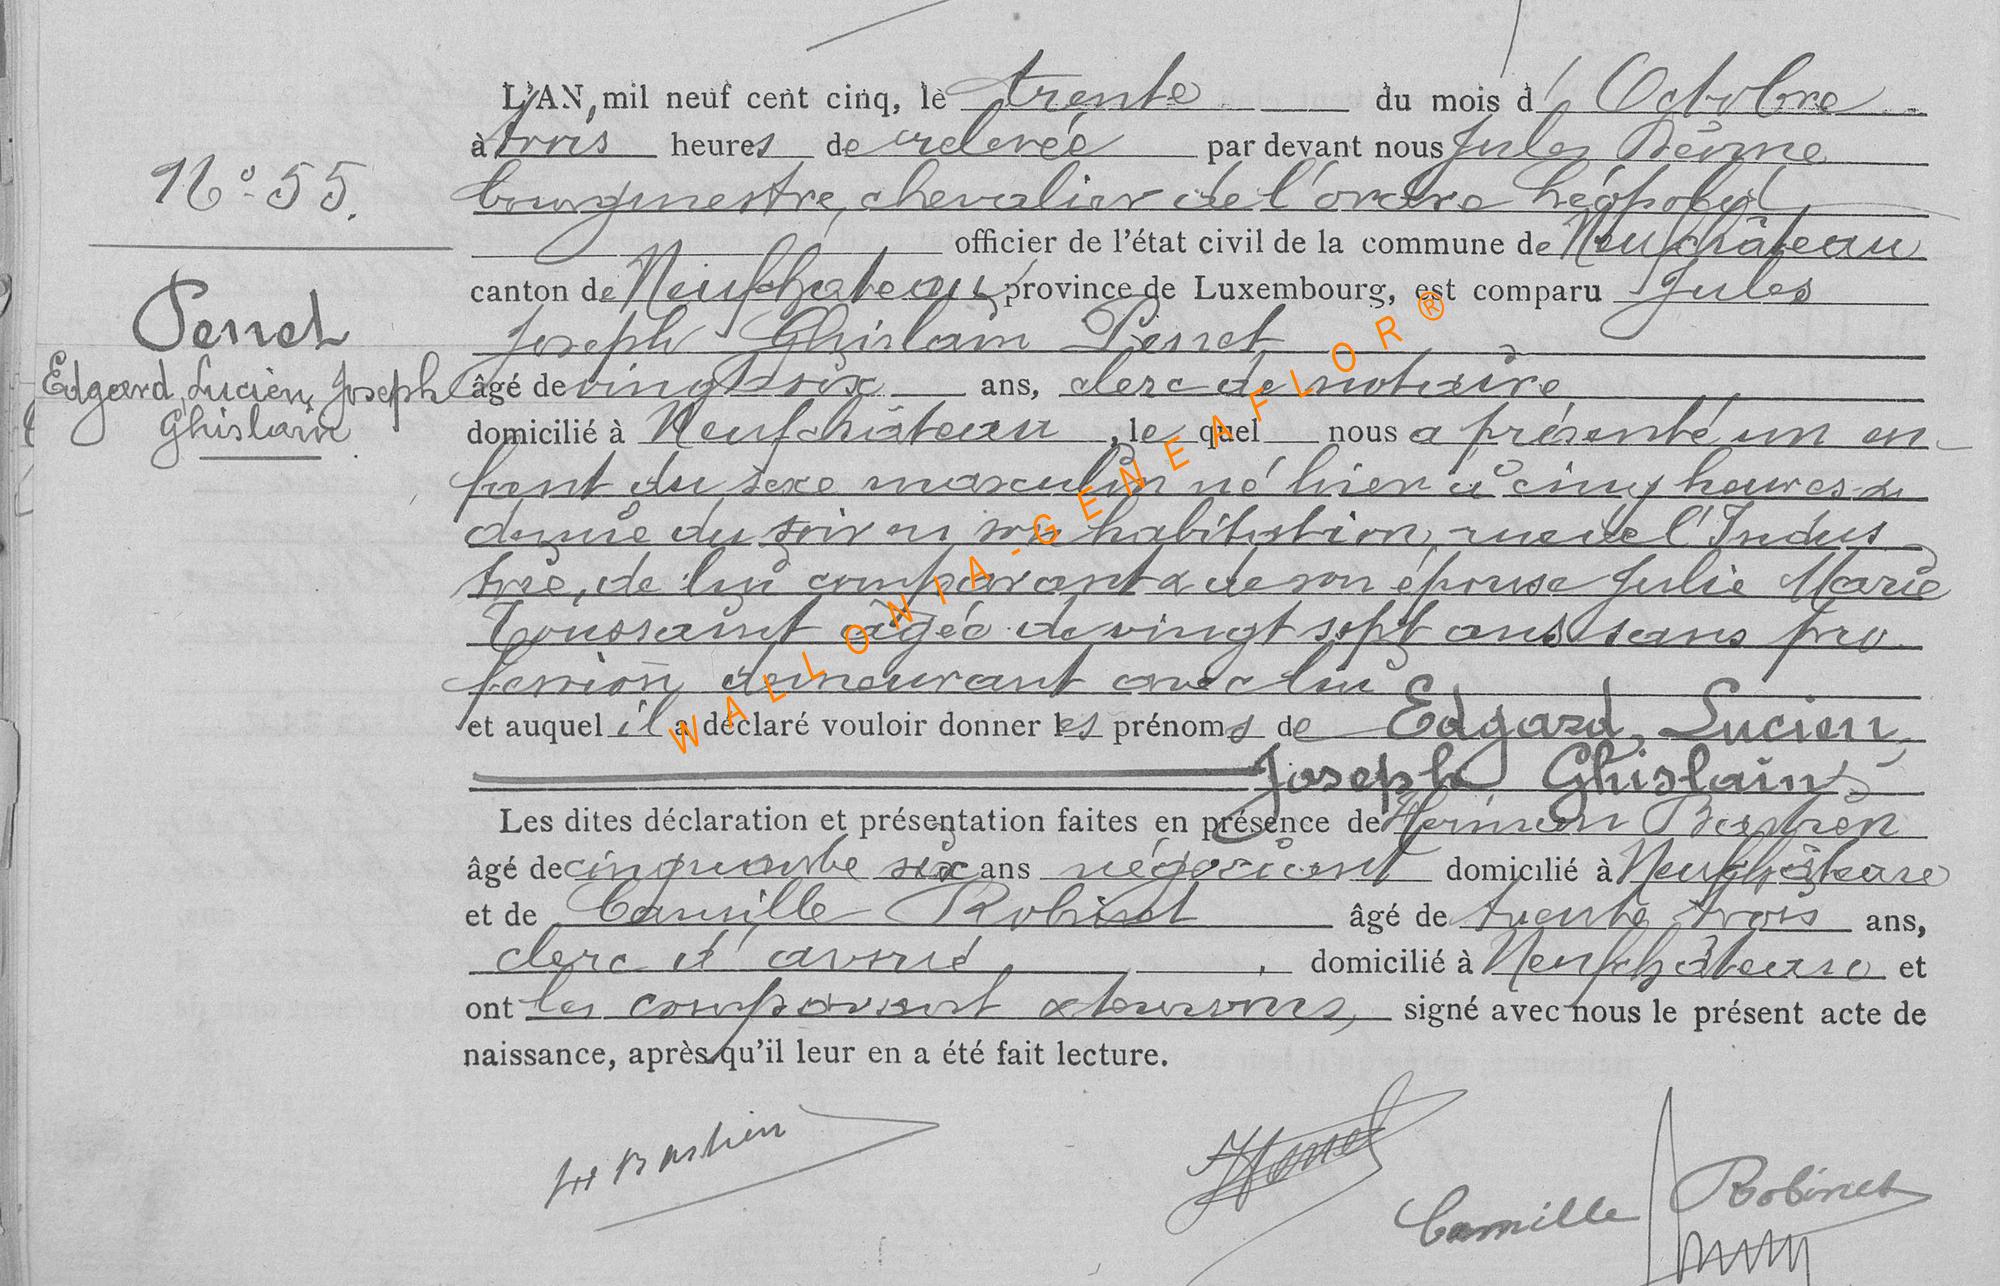 L'AN, mil neuf cent cinq, le trente du mois d'Octobre
à trois heures de relevée par devant nous Jules
bourgmestre, chevalier de l'ordre Léopold
officier de l'état civil de la commune de Neufchâteau
canton de Neufchateau, province de Luxembourg, est comparu Jules
N° 55.
Joseph Ghislain Penet
âgé de vingt six ans, clerc de notaire
domicilié à Neufchâteau, le quel nous a présenté un en-
Penet
Edgard, Lucien, Joseph
Ghislain
fant du sexe masculin né hier à cinq heures &
demie du soir en son habitation, rue de l'Indus
trie, de lui comparant & de son épouse Julie Marie
Toussaint âgée de vingt sept ans sans pro
fession demeurant avec lui
et auquel il a déclaré vouloir donner les prénoms de Edgard, Lucien,
Joseph Ghislain
Les dites déclaration et présentation faites en présence de Bastien
âgé de cinquante six ans négociant domicilié à Neufchâteau
et de Camille Robinet âgé de trente trois ans,
clerc d'avoué, domicilié à Neufchâteau et
ont les comparant & témoins, signé avec nous le présent acte de
naissance, après qu'il leur en a été fait lecture.
H Bastien
Camille Robinet
WALLONIA-GENEAFLOR®